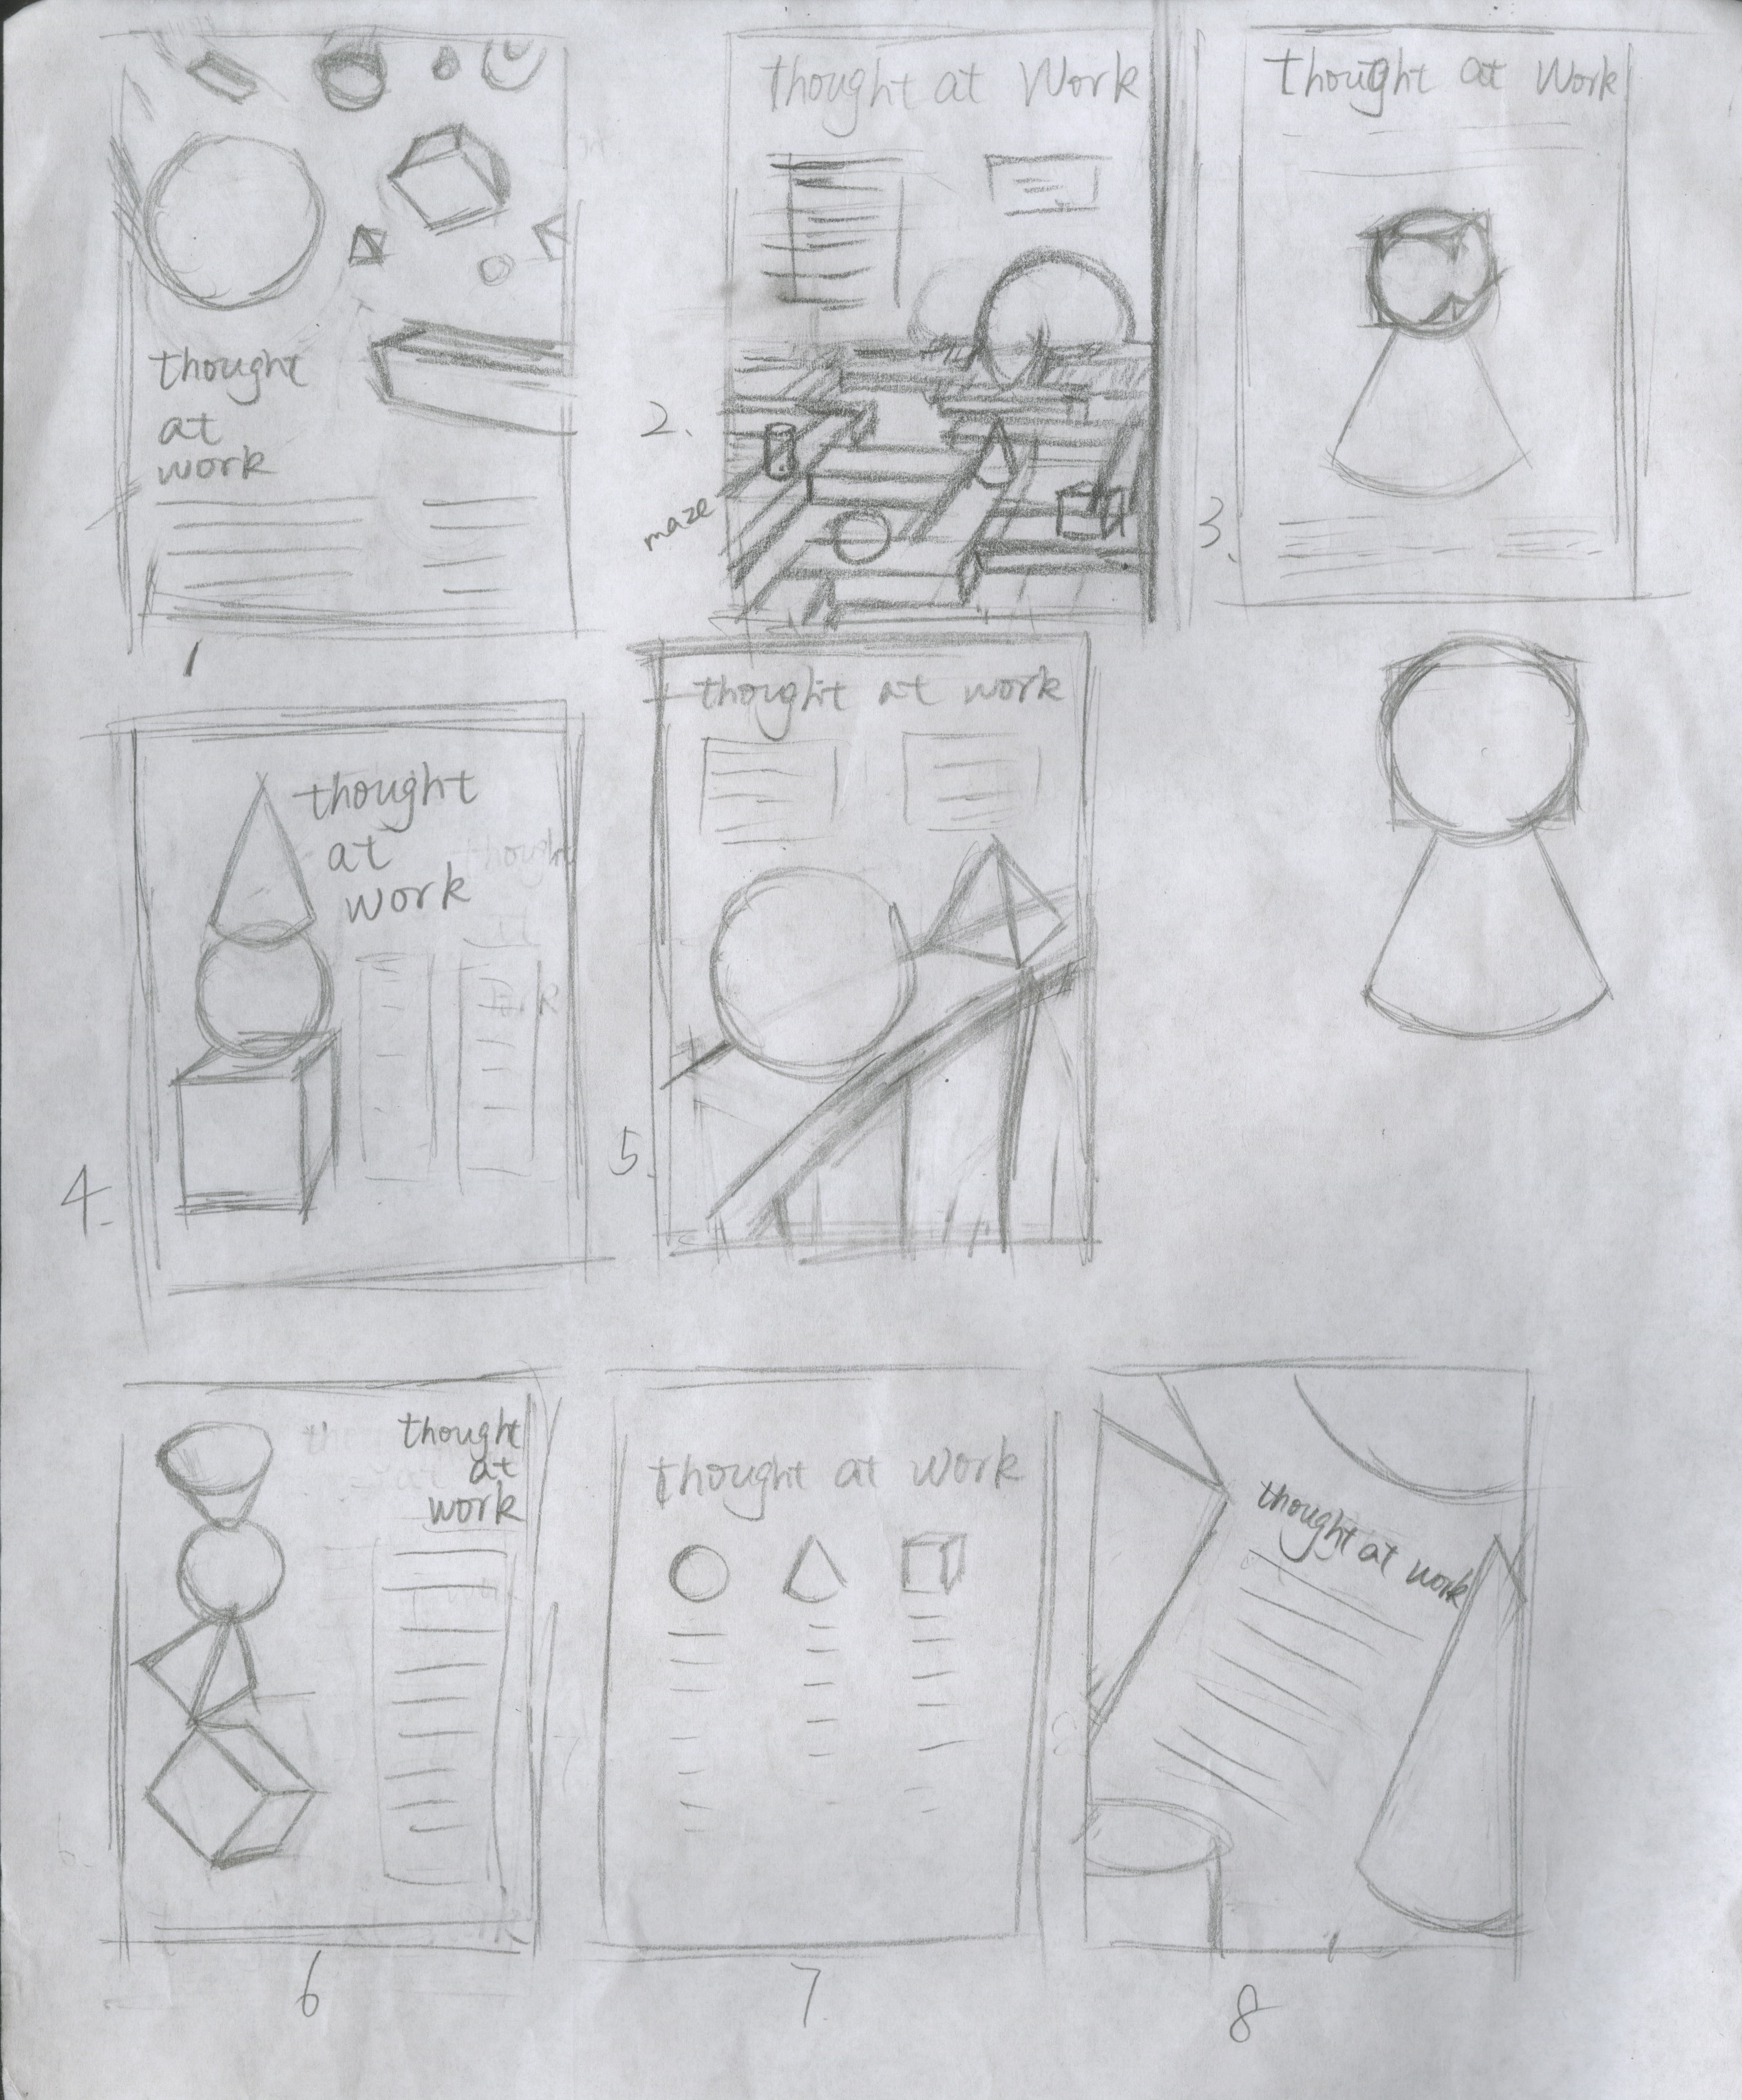 thought
at
work
1
thought at Work
2.
maze
thought at Work
3.
thought
at
work
4.
thought at work
5.
thought
at
work
6
thought at work
7
thought at work
8